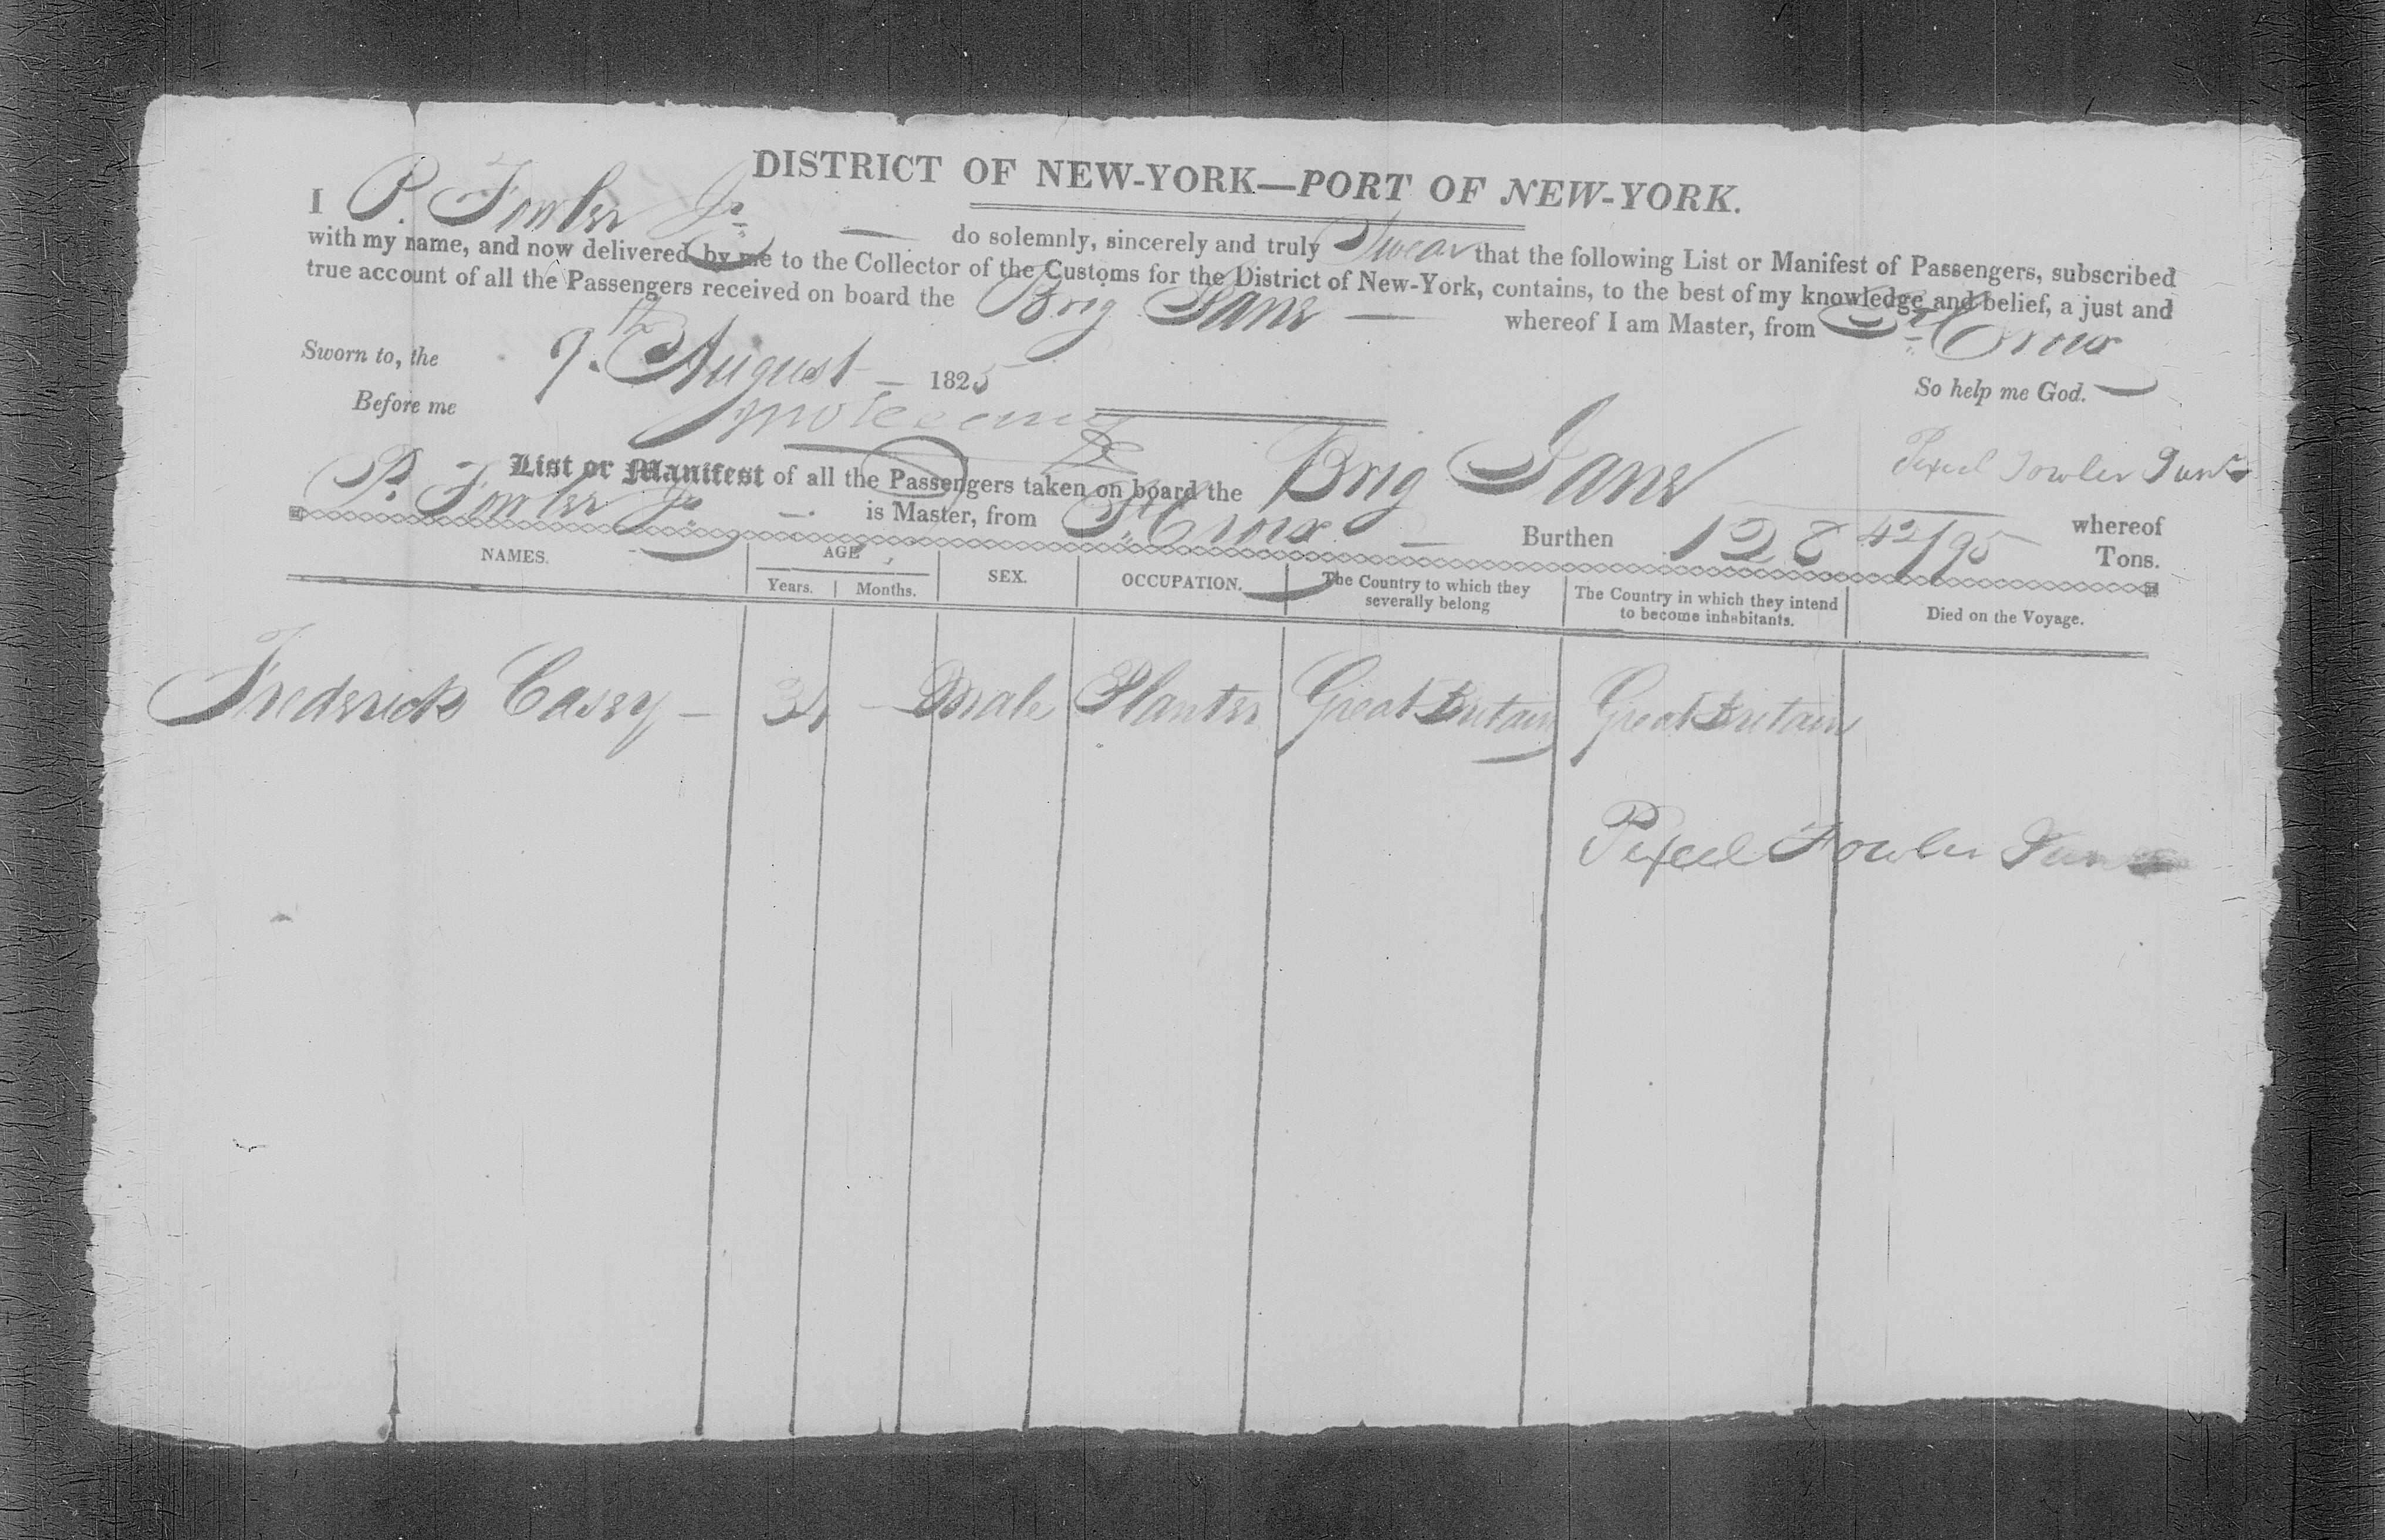 DISTRICT OF NEW-YORK—PORT OF NEW-YORK.
I P. Fowler Jr. — do solemnly, sincerely and truly Swear that the following List or Manifest of Passengers, subscribed
with my name, and now delivered by me to the Collector of the Customs for the District of New-York, contains, to the best of my knowledge and belief, a just and
true account of all the Passengers received on board the Brig Jane — whereof I am Master, from St Croix
Sworn to, the 9th August — 1825
So help me God.
Before me
Fowler Junr
List or Manifest of all the Passengers taken on board the Brig Jane whereof
P. Fowler Jr. — is Master, from St Croix — Burthen 128 42/95 Tons.
NAMES. AGE SEX. OCCUPATION. The Country to which they severally belong The Country in which they intend to become inhabitants. Died on the Voyage.
Years. Months.
Frederick Casey — 34 — Male Planter Great Britain Great Britain
Fowler Junr